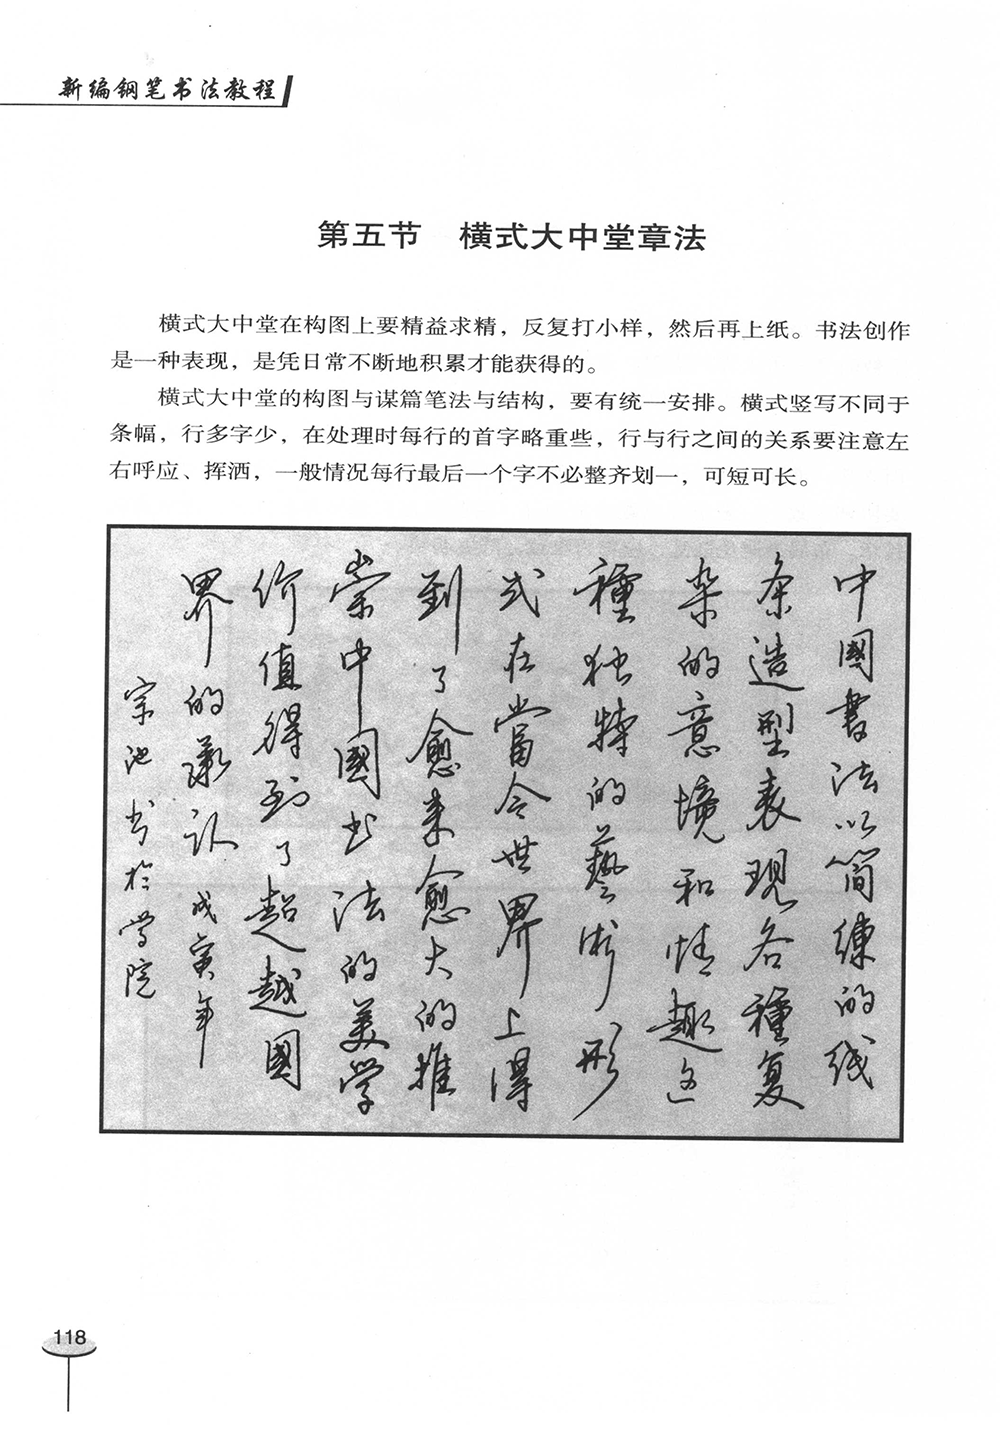 新编钢笔书法教程
第五节 横式大中堂章法
横式大中堂在构图上要精益求精，反复打小样，然后再上纸。书法创作
是一种表现，是凭日常不断地积累才能获得的。
横式大中堂的构图与谋篇笔法与结构，要有统一安排。横式竖写不同于
条幅，行多字少，在处理时每行的首字略重些，行与行之间的关系要注意左
右呼应、挥洒，一般情况每行最后一个字不必整齐划一，可短可长。
中國書法以简練的线
条造型表现各種复
杂的意境和情趣这
種独特的藝術形
式在當今世界上得
到了愈来愈大的推
崇中國书法的美学
价值得到了超越國
界的承认 戊寅年
宗池书於学院
118